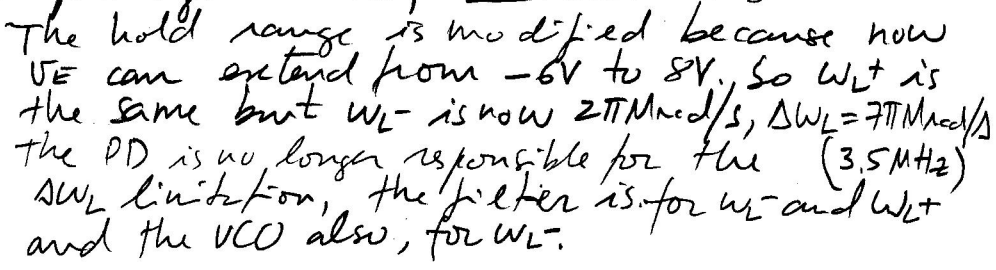 The hold range is modified because now
VE can extend from -6V to 8V. So WL+ is
the same but WL- is now 2πMrad/s, ΔWL=7πMrad/s
the PD is no longer responsible for the (3.5MHz)
ΔWL limitation, the filter is for WL- and WL+
and the VCO also, for WL-.